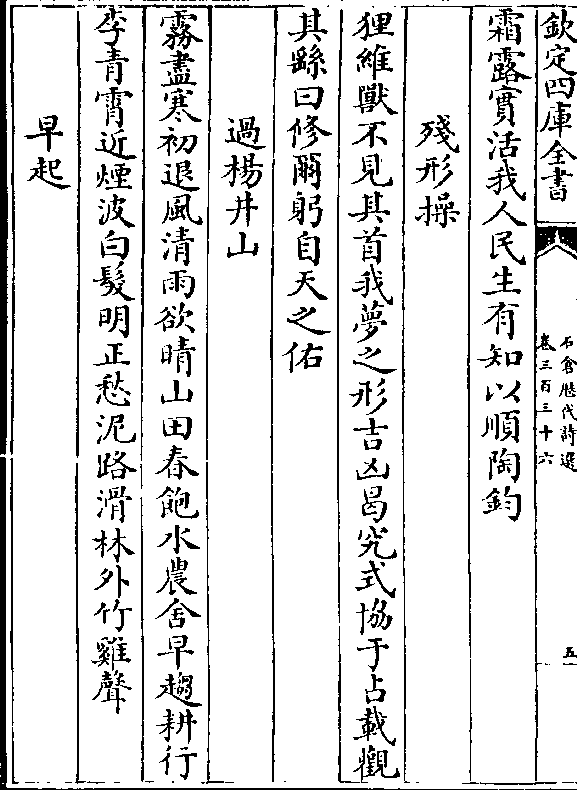 欽定四庫全書
石倉歷代詩選
卷三百三十六
五
霜露實活我人民生有知以順陶鈞
殘形操
狸維獸不見其首我夢之形吉凶曷究式協于占載觀
其繇曰修爾躬自天之佑
過楊井山
霧盡寒初退風清雨欲晴山田春飽水農舍早趨耕行
李青霄近煙波白髮明正愁泥路滑林外竹雞聲
早起